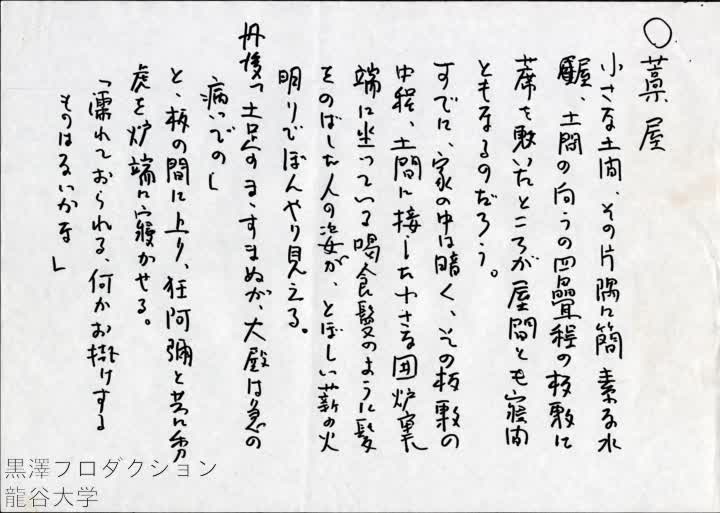 ○藁屋
小さな土間、その片隅に簡素な水
屋、土間の向うの四畳程の板敷に
蓆を敷いたところが居間とも寝間
ともなるのだろう。
すでに、家の中は暗く、その板敷の
中程、土間に接した小さな囲炉裏
端に坐っている喝食髪のように髪
をのばした人の姿が、とぼしい薪の火
明りでぼんやり見える。
丹後「土足のまゝすまぬが、大殿は急の
病いでの」
と、板の間に上り、狂阿彌と共に秀
虎を炉端に寝かせる。
「濡れておられる、何かお掛けする
ものはないかな」
黒澤プロダクション
龍谷大学